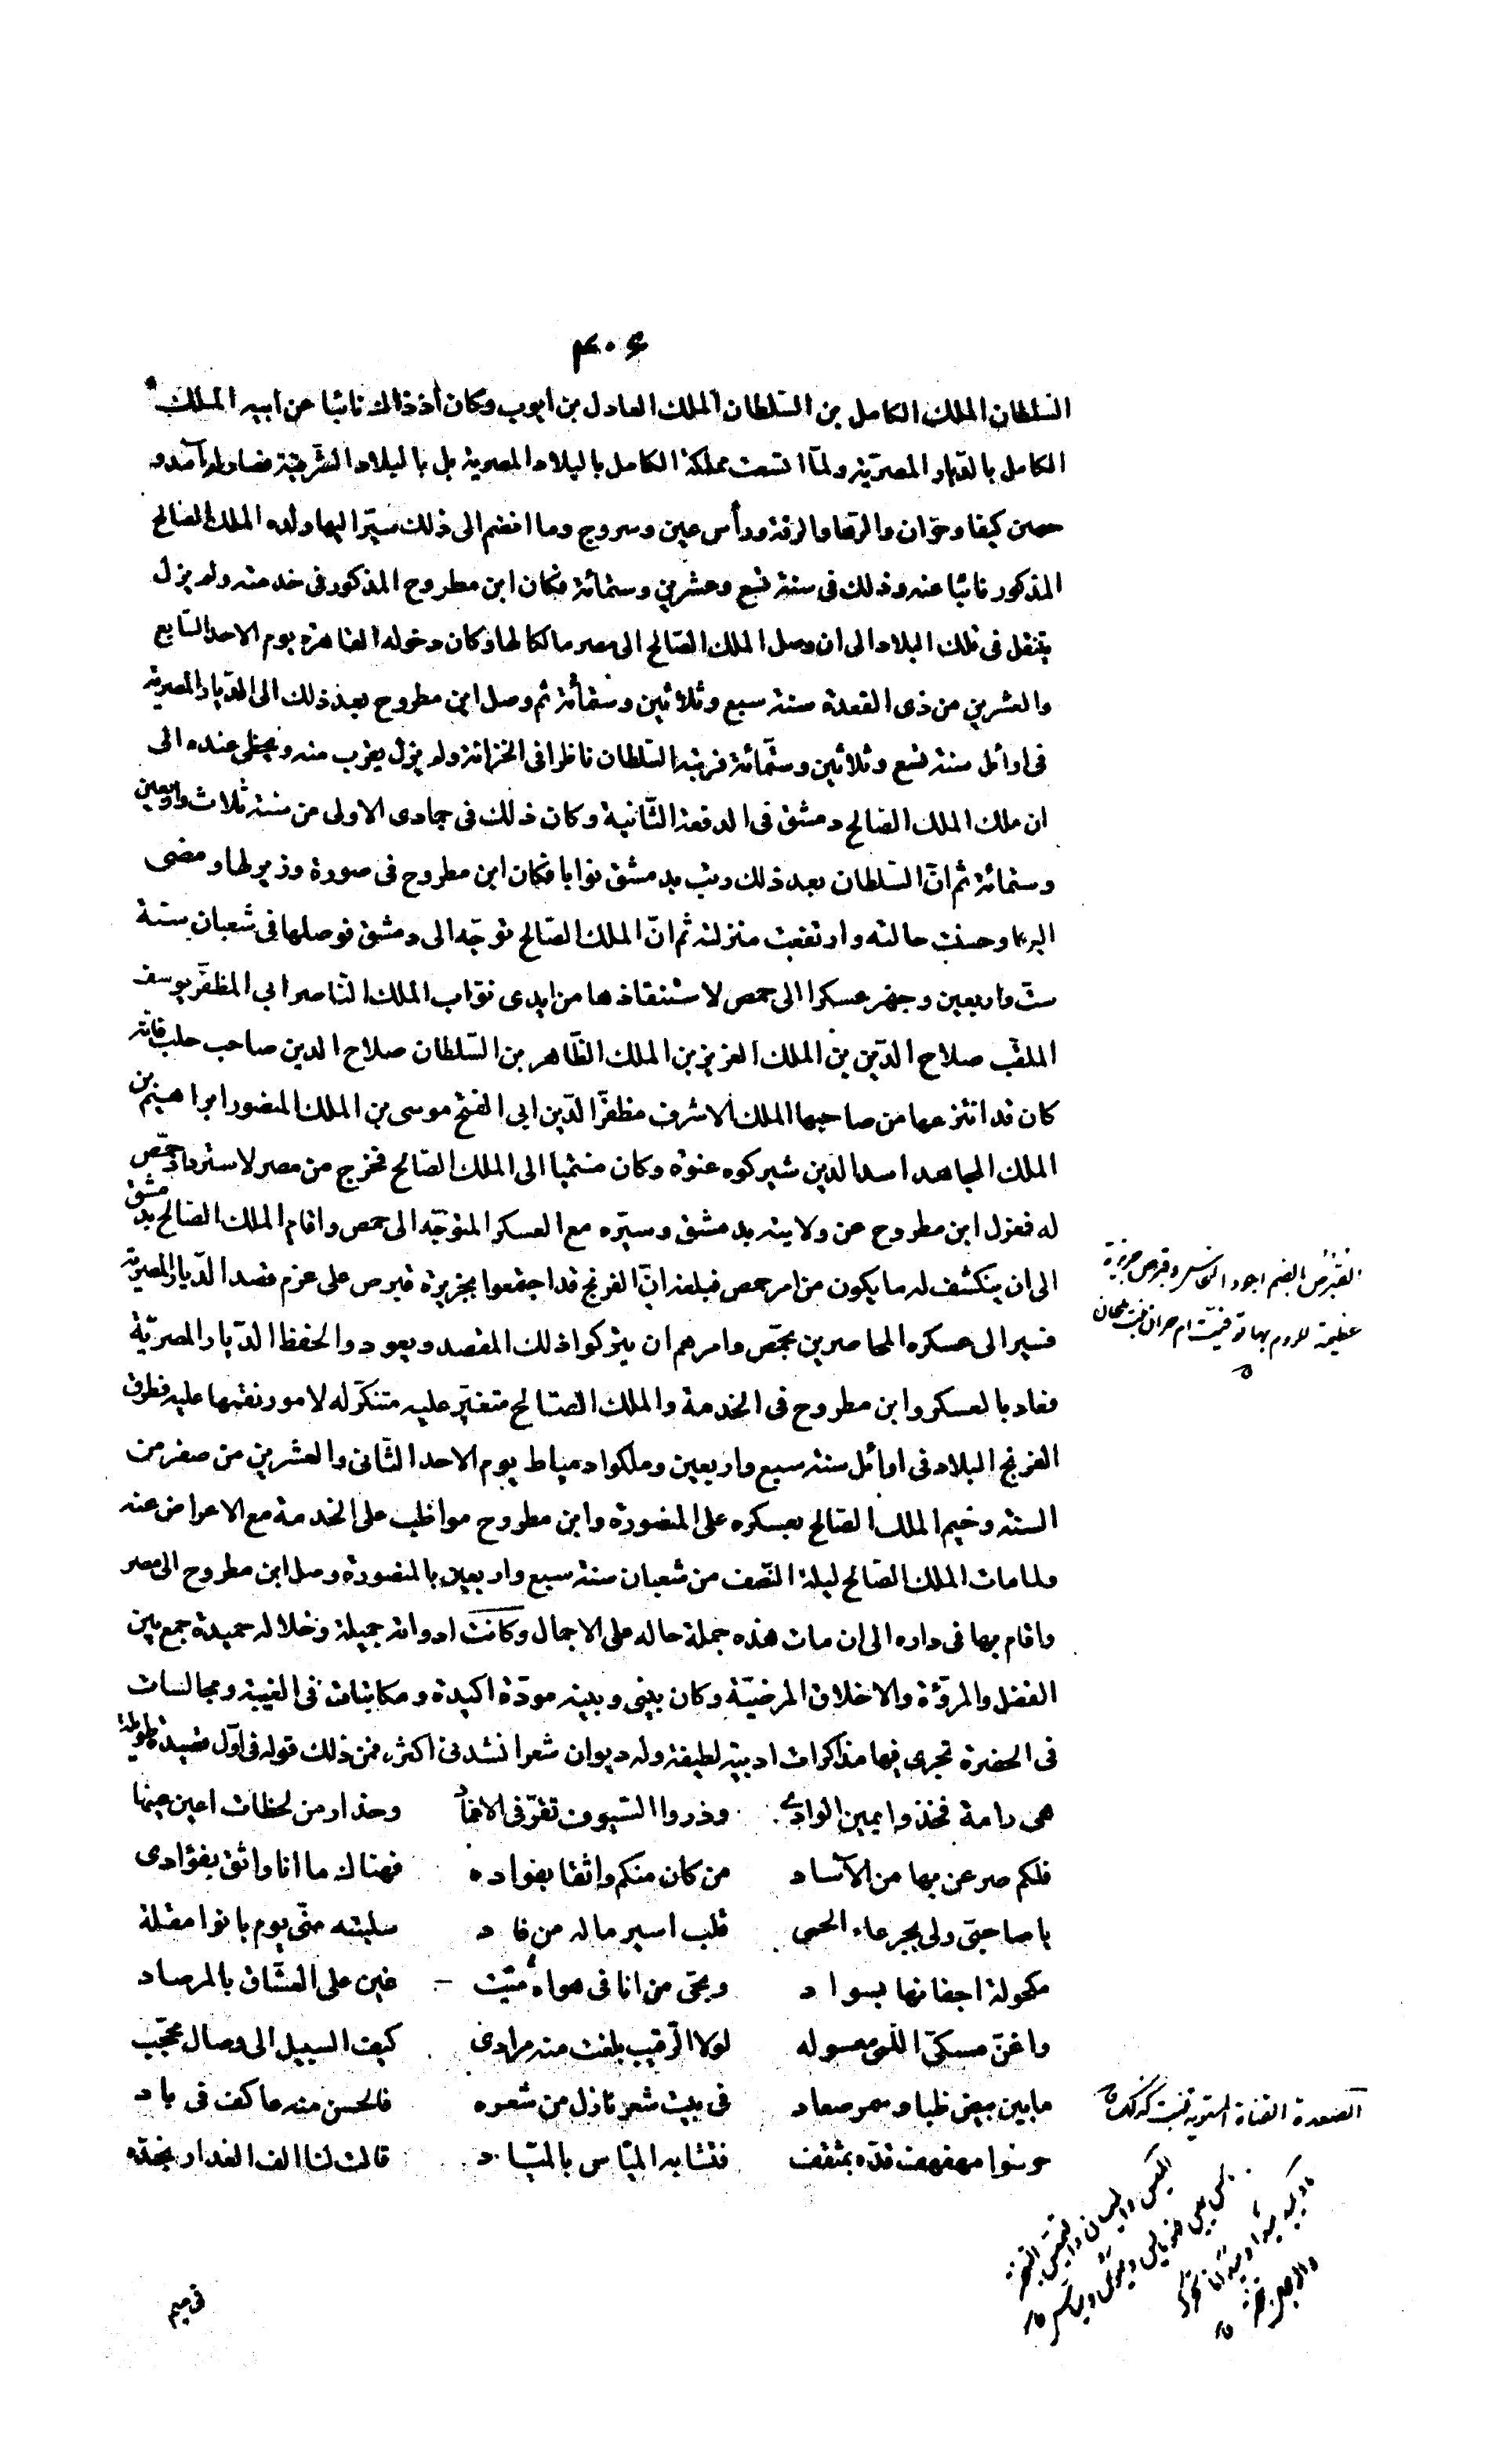 ۴۰۶
السلطان الملك الكامل بن السّلطان الملك العادل بن ايوب وكان اذ ذاك نائبا عن ابيه الملك
الكامل بالدّيار المصريّة ولمّا اتسعت مملكة الكامل بالبلاد المصرية بل بالبلاد الشّرقيّة فصار له آمد و
حصن كيفا وحرّان والرّها والرقة ورأس عين وسروج وما انضم الى ذلك سيّر اليها ولده الملك الصّالح
المذكور نائبا عنه وذلك فى سنة تسع وعشرين وستمائة فكان ابن مطروح المذكور فى خدمته ولم يزل
يتنقل فى تلك البلاد الى ان وصل الملك الصّالح الى مصر مالكا لها وكان دخوله القاهرة يوم الاحد السّابع
والعشرين من ذى القعدة سنة سبع وثلاثين وستمائة ثم وصل ابن مطروح بعد ذلك الى الدّيار المصرية
فى اوائل سنة تسع وثلاثين وستّمائة فرتبه السّلطان ناظرا فى الخزانة ولم يزل يقرب منه ويحظى عنده الى
ان ملك الملك الصّالح دمشق فى الدفعة الثّانية وكان ذلك فى جمادى الاولى من سنة ثلاث واربعين
وستمائة ثم انّ السّلطان بعد ذلك رتب بدمشق نوابا فكان ابن مطروح فى صورة وزير لها ومضى
اليها وحسنت حالته وارتفعت منزلته ثم انّ الملك الصّالح توجّه الى دمشق فوصلها فى شعبان سنة
ستّ واربعين وجهز عسكرا الى حمص لاستنقاذها من ايدى نوّاب الملك النّاصر ابى المظفّر يوسف
الملقّب صلاح الدّين بن الملك العزيز بن الملك الظّاهر بن السّلطان صلاح الدين صاحب حلب فانه
كان قد انتزعها من صاحبها الملك الاشرف مظفّر الدّين ابى الفتح موسى بن الملك المنصور ابراهيم بن
الملك المجاهد اسد الدين شيركوه عنوة وكان منتميا الى الملك الصّالح فخرج من مصر لاسترداد حمص
له فعزل ابن مطروح عن ولايته بدمشق وسيّره مع العسكر المتوجّه الى حمص واقام الملك الصّالح بدمشق
الى ان ينكشف له ما يكون من امر حمص فبلغه انّ الفرنج قد اجتمعوا بجزيرة قبرص على عزم قصد الدّيار المصريّة
فسير الى عسكره المحاصرين بحمّص وامرهم ان يتركوا ذلك المقصد ويعودوا لحفظ الدّيار المصريّة
فعاد بالعسكر وابن مطروح فى الخدمة والملك الصّالح متغيّر عليه متنكّر له لامور نقمها عليه فطرق
الفرنج البلاد فى اوائل سنة سبع واربعين وملكوا دمياط يوم الاحد الثّانى والعشرين من صفر من
السنة وخيم الملك الصّالح بعسكره على المنصورة وابن مطروح مواظب على الخدمة مع الاعراض عنه
ولما مات الملك الصّالح ليلة النّصف من شعبان سنة سبع واربعين بالمنصورة وصل ابن مطروح الى مصر
واقام بها فى داره الى ان مات هذه جملة حاله على الاجمال وكانت ادواته جميلة وخلاله حميدة جمع بين
الفضل والمروّة والاخلاق المرضيّة وكان بينى وبينه مودّة اكيدة ومكاتبات فى الغيبة ومجالسات
فى الحضرة تجرى فيها مذاكرات ادبيّة لطيفة وله ديوان شعر انشدنى اكثره فمن ذلك قوله فى اوّل قصيدة طويلة
هى رامة فخذوا يمين الوادى وذروا السّيوف تقرّ فى الاغماد وحذار من لحظات اعين عينها
فلكم صرعن بها من الآساد من كان منكم واثقا بفواده فهناك ما انا واثق بفؤادى
يا صاحبىّ ولى بجرعاء الحمى قلب اسير ماله من فاد سلبته منّى يوم بانوا مقلة
مكحولة اجفانها بسواد وبحىّ من انا فى هواه ميّت عين على العشّاق بالمرصاد
واغنّ مسكىّ اللّمى معسوله لولا الرّقيب بلغت منه مرادى كيف السبيل الى وصال محجّب
ما بين بيض ظبا وسمر صعاد فى بيت شعر نازل من شعره فالحسن منه عاكف فى باد
حرسوا مهفهف قدّه بمثقف فتشابه الميّاس بالميّاد قالت لنا الف العذار بخدّه
القبرص بالضم اجود النحاس وقبرص جزيرة
عظيمة للروم بها توفيت ام حرام بنت ملحان
الصعدة القناة المستوية تنبت كذلك
فى ميم